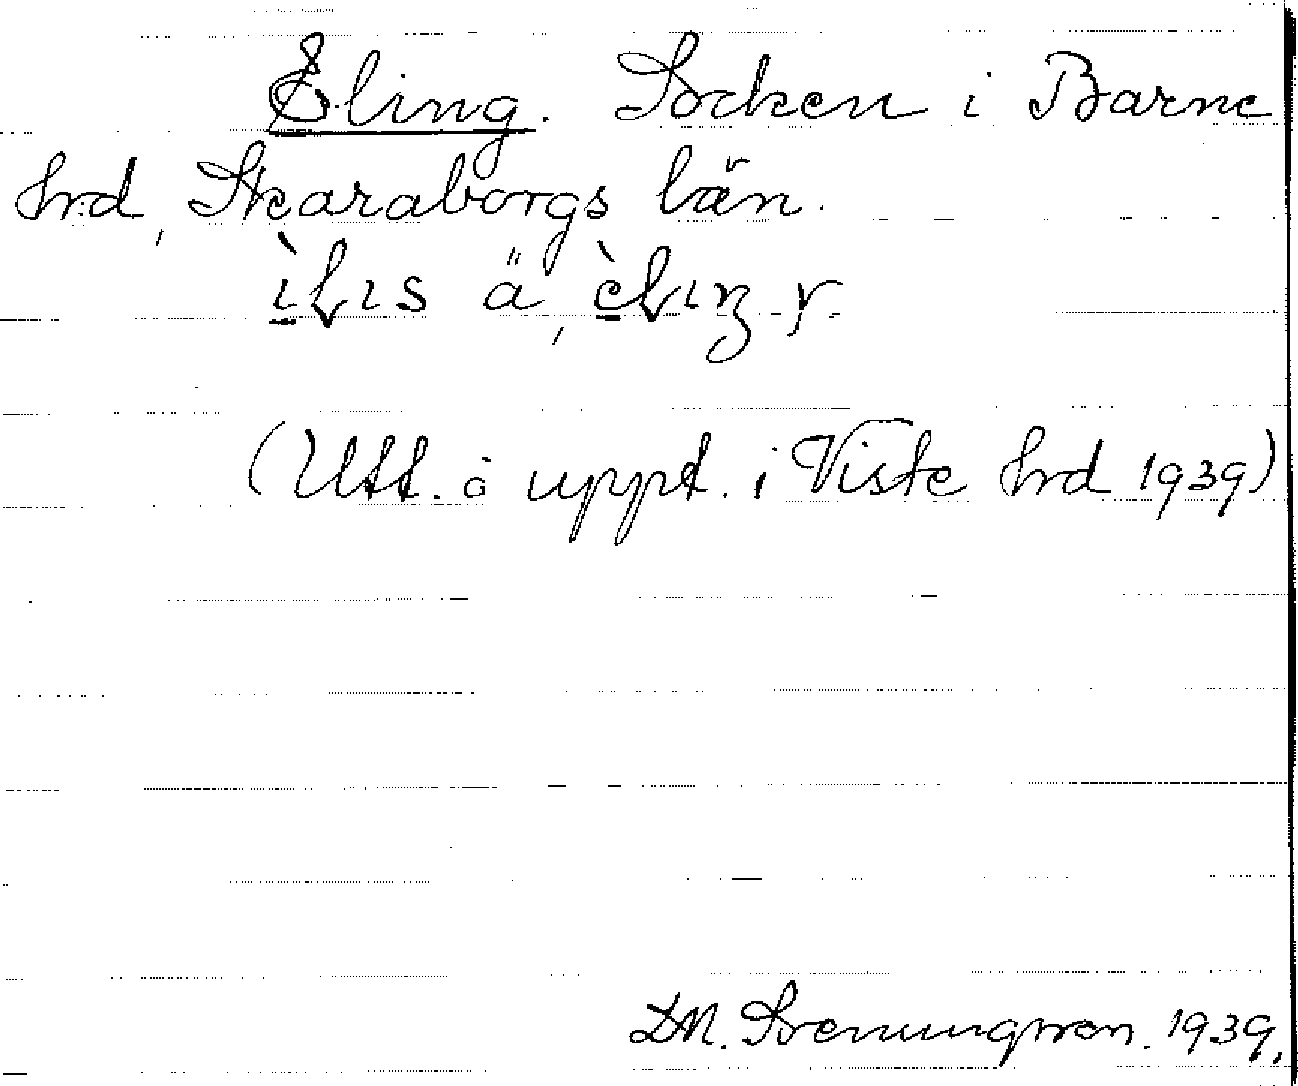 Eling. Socken i Barne
hrd, Skaraborgs län.
ìłıs ä, èłıŋ y.
(Utt. o uppt. i Viste hrd 1939)
D.M. Svenungsson. 1939.